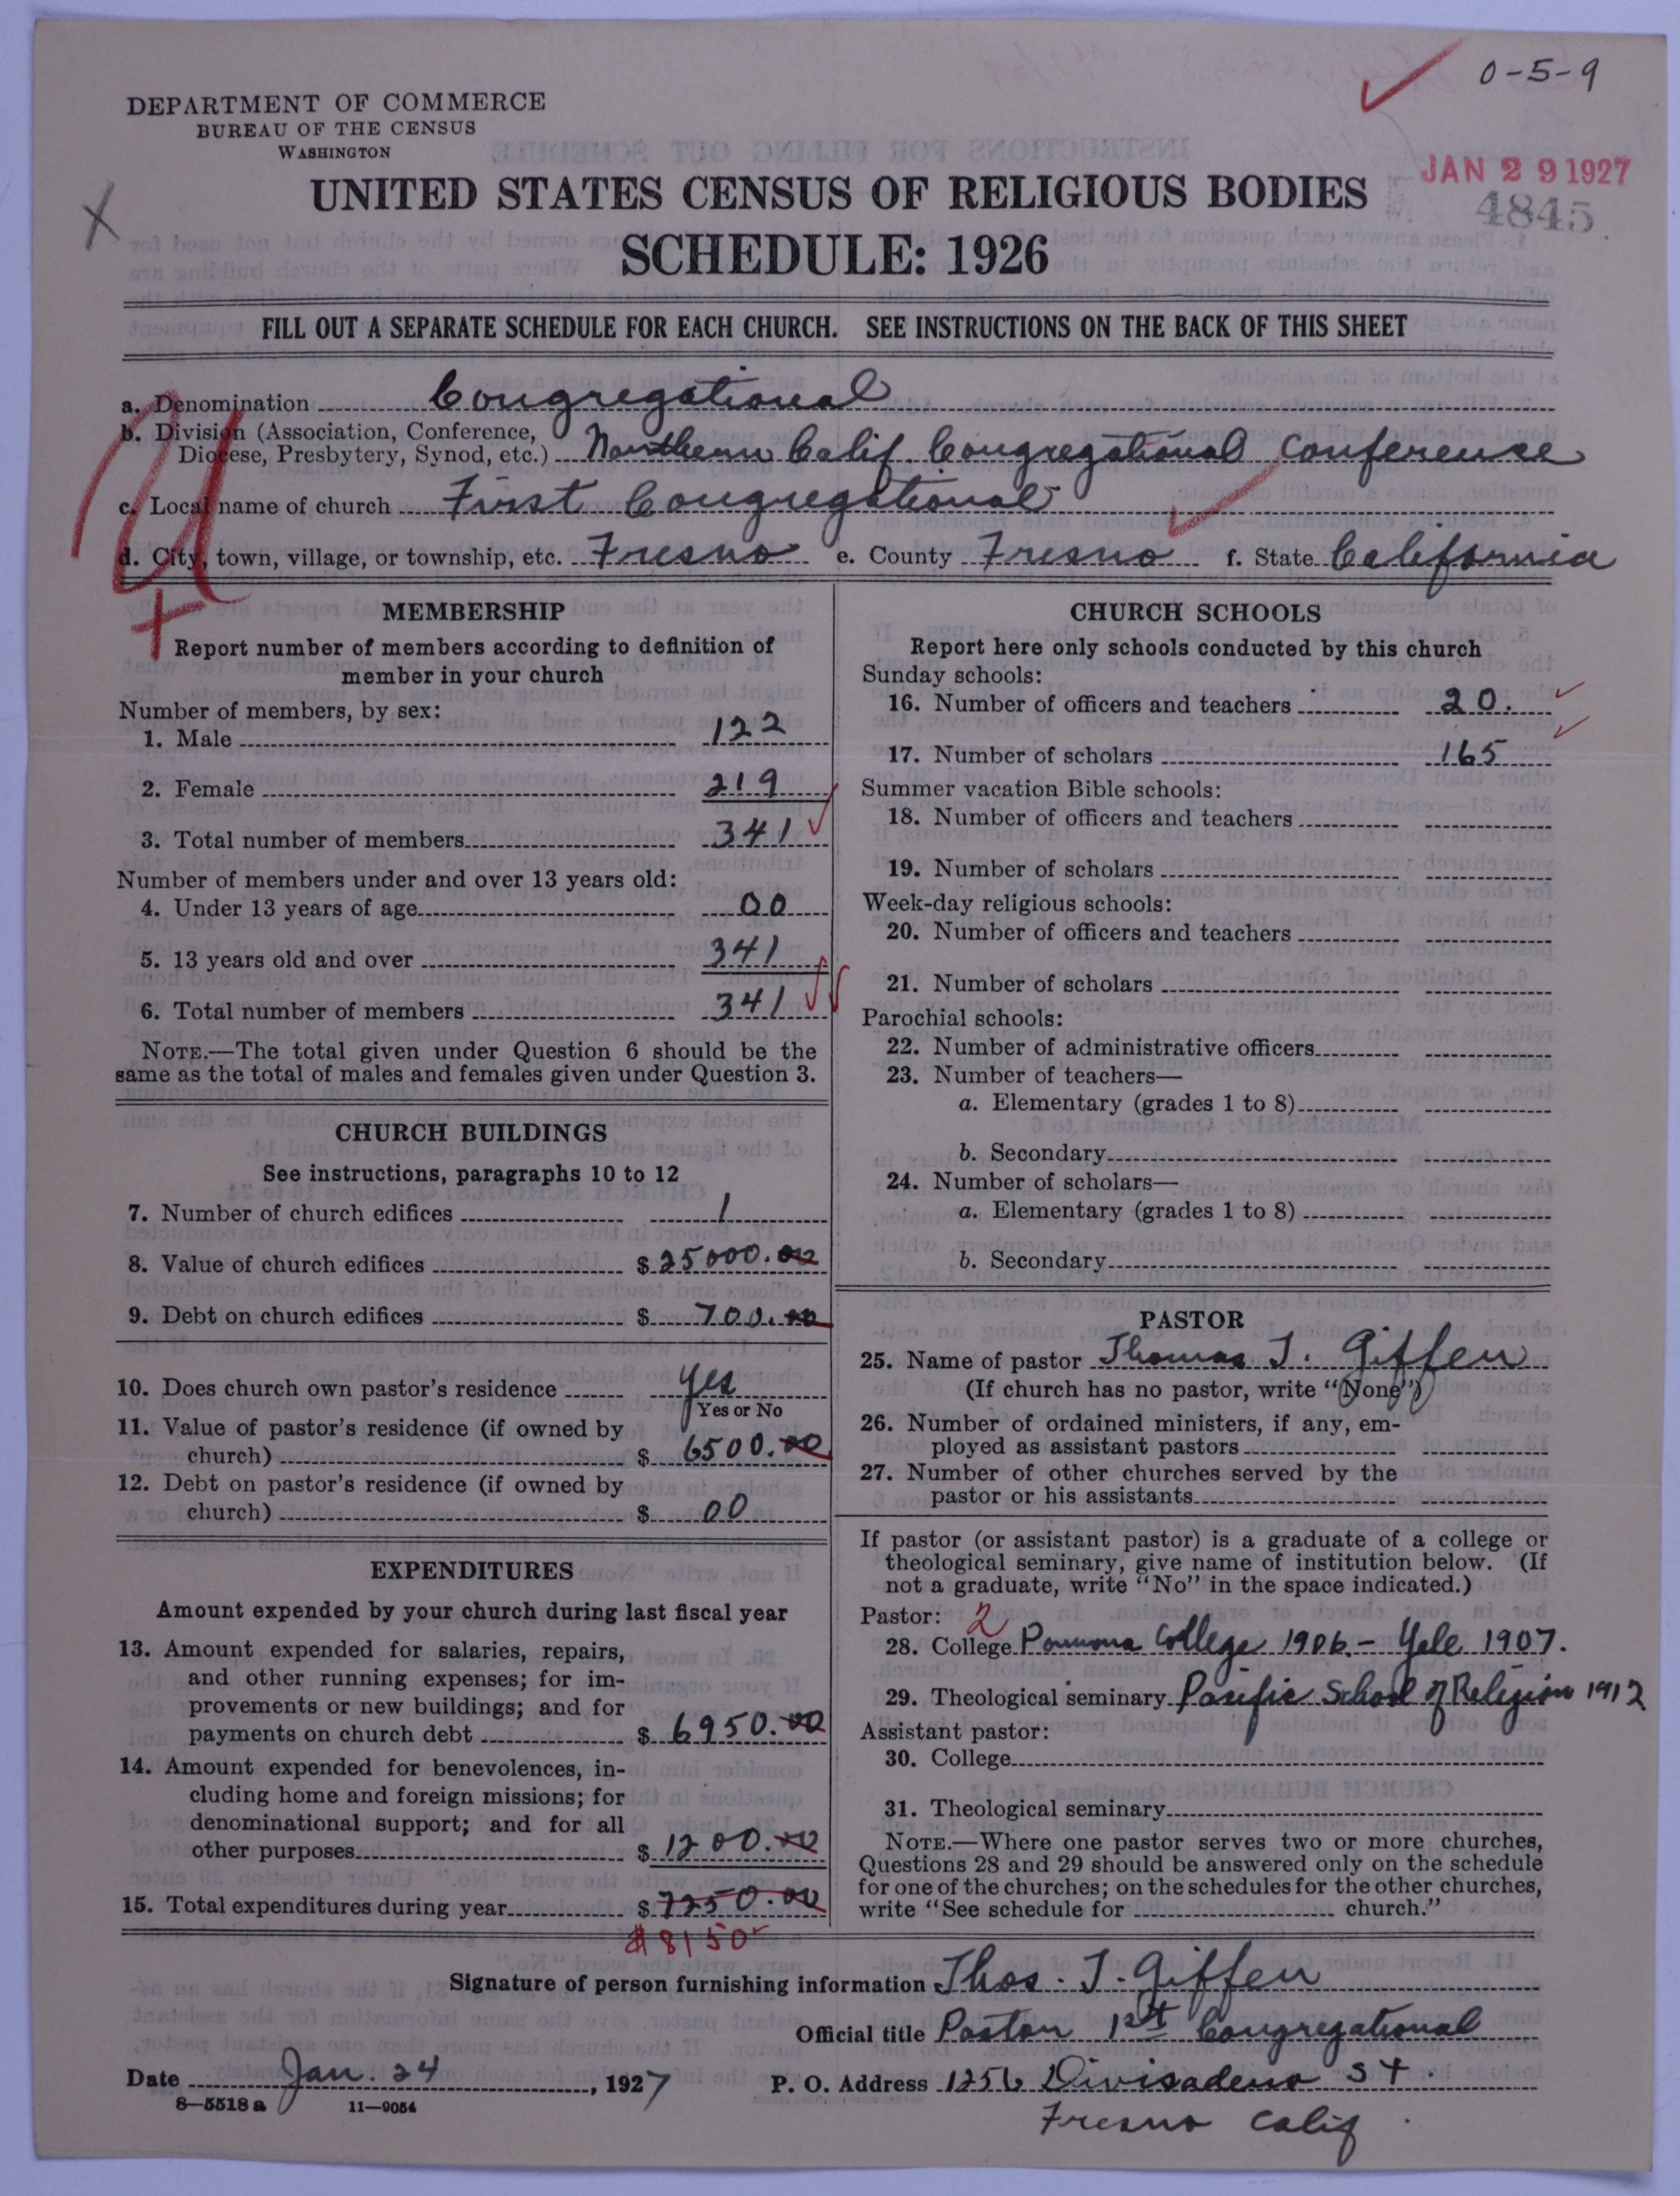 0-5-9
DEPARTMENT OF COMMERCE
BUREAU OF THE CENSUS
WASHINGTON
JAN 29 1927
4845
X
UNITED STATES CENSUS OF RELIGIOUS BODIES
SCHEDULE: 1926
FILL OUT A SEPARATE SCHEDULE FOR EACH CHURCH. SEE INSTRUCTIONS ON THE BACK OF THIS SHEET
a. Denomination Congregational
b. Division (Association, Conference,
Diocese, Presbytery, Synod, etc.) Northern Calif. Congregational Conference
c. Local name of church First Congregational
d. City, town, village, or township, etc. Fresno e. County Fresno f. State California
MEMBERSHIP
Report number of members according to definition of
member in your church
Number of members, by sex:
1. Male 122
2. Female 219
3. Total number of members 341
Number of members under and over 13 years old:
4. Under 13 years of age 00
5. 13 years old and over 341
6. Total number of members 341
NOTE.—The total given under Question 6 should be the
same as the total of males and females given under Question 3.
CHURCH BUILDINGS
See instructions, paragraphs 10 to 12
7. Number of church edifices 1
8. Value of church edifices $ 25000.00
9. Debt on church edifices $ 700.00
10. Does church own pastor's residence Yes
Yes or No
11. Value of pastor's residence (if owned by
church) $ 6500.00
12. Debt on pastor's residence (if owned by
church) $ 00
EXPENDITURES
Amount expended by your church during last fiscal year
13. Amount expended for salaries, repairs,
and other running expenses; for im-
provements or new buildings; and for
payments on church debt $ 6950.00
14. Amount expended for benevolences, in-
cluding home and foreign missions; for
denominational support; and for all
other purposes $ 1200.00
15. Total expenditures during year $ 7250.00
$8150
CHURCH SCHOOLS
Report here only schools conducted by this church
Sunday schools:
16. Number of officers and teachers 20.
17. Number of scholars 165
Summer vacation Bible schools:
18. Number of officers and teachers
19. Number of scholars
Week-day religious schools:
20. Number of officers and teachers
21. Number of scholars
Parochial schools:
22. Number of administrative officers
23. Number of teachers—
a. Elementary (grades 1 to 8)
b. Secondary
24. Number of scholars—
a. Elementary (grades 1 to 8)
b. Secondary
PASTOR
25. Name of pastor Thomas J. Giffen
(If church has no pastor, write "None")
26. Number of ordained ministers, if any, em-
ployed as assistant pastors
27. Number of other churches served by the
pastor or his assistants
If pastor (or assistant pastor) is a graduate of a college or
theological seminary, give name of institution below. (If
not a graduate, write "No" in the space indicated.)
Pastor: 2
28. College Pomona College 1906.- Yale 1907.
29. Theological seminary Pacific School of Religion 1912
Assistant pastor:
30. College
31. Theological seminary
NOTE.—Where one pastor serves two or more churches,
Questions 28 and 29 should be answered only on the schedule
for one of the churches; on the schedules for the other churches,
write "See schedule for church."
Signature of person furnishing information Thos. J. Giffen
Official title Pastor 1st Congregational
Date Jan. 24, 1927 P. O. Address 1256 Divisadero St.
8—5518a 11—9054
Fresno Calif.